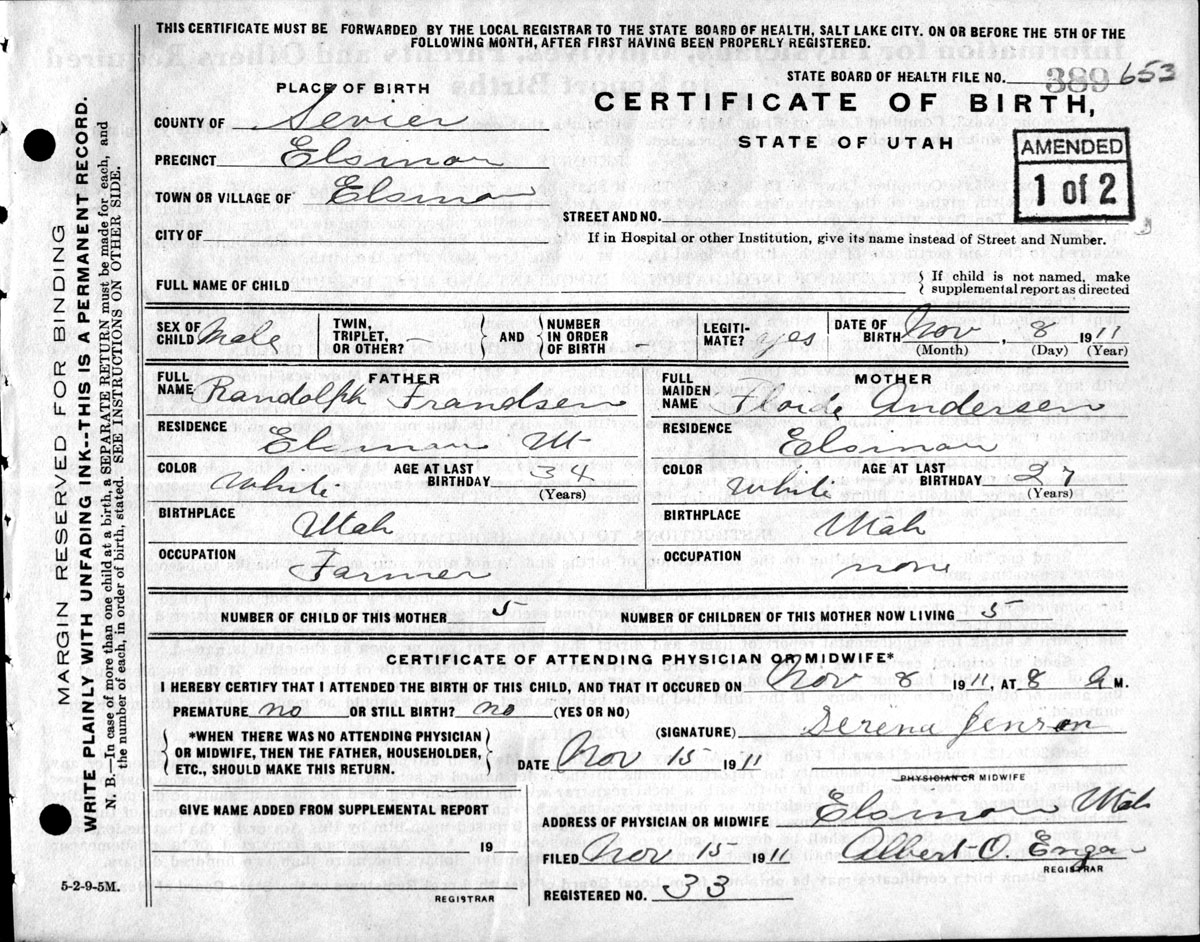 THIS CERTIFICATE MUST BE FORWARDED BY THE LOCAL REGISTRAR TO THE STATE BOARD OF HEALTH, SALT LAKE CITY. ON OR BEFORE THE 5TH OF THE
FOLLOWING MONTH, AFTER FIRST HAVING BEEN PROPERLY REGISTERED.
STATE BOARD OF HEALTH FILE NO. 389 653
PLACE OF BIRTH
CERTIFICATE OF BIRTH,
STATE OF UTAH
AMENDED
1 of 2
COUNTY OF Sevier
PRECINCT Elsinor
TOWN OR VILLAGE OF Elsinor
STREET AND NO.
CITY OF
If in Hospital or other Institution, give its name instead of Street and Number.
FULL NAME OF CHILD
{ If child is not named, make
supplemental report as directed
SEX OF CHILD Male
TWIN, TRIPLET, OR OTHER? -
} AND {
NUMBER IN ORDER OF BIRTH -
LEGITIMATE? yes
DATE OF BIRTH Nov, 8 1911
(Month) (Day) (Year)
FATHER
FULL NAME Randolph Frandsen
RESIDENCE Elsinor Ut
COLOR White
AGE AT LAST BIRTHDAY 34
(Years)
BIRTHPLACE Utah
OCCUPATION Farmer
MOTHER
FULL MAIDEN NAME Andersen
RESIDENCE Elsinor
COLOR White
AGE AT LAST BIRTHDAY 27
(Years)
BIRTHPLACE Utah
OCCUPATION none
NUMBER OF CHILD OF THIS MOTHER 5
NUMBER OF CHILDREN OF THIS MOTHER NOW LIVING 5
CERTIFICATE OF ATTENDING PHYSICIAN OR MIDWIFE*
I HEREBY CERTIFY THAT I ATTENDED THE BIRTH OF THIS CHILD, AND THAT IT OCCURED ON Nov 8 1911, AT 8 A M.
PREMATURE no OR STILL BIRTH? no (YES OR NO)
(SIGNATURE) Serena Jenson
{ *WHEN THERE WAS NO ATTENDING PHYSICIAN
OR MIDWIFE, THEN THE FATHER, HOUSEHOLDER,
ETC., SHOULD MAKE THIS RETURN. }
DATE Nov 15 1911
PHYSICIAN OR MIDWIFE
GIVE NAME ADDED FROM SUPPLEMENTAL REPORT
19
REGISTRAR
ADDRESS OF PHYSICIAN OR MIDWIFE Elsinor Utah
FILED Nov 15 1911 Albert O.
REGISTRAR
REGISTERED NO. 33
5-2-9-5M.
MARGIN RESERVED FOR BINDING
WRITE PLAINLY WITH UNFADING INK--THIS IS A PERMANENT RECORD.
N. B.—In case of more than one child at a birth, a SEPARATE RETURN must be made for each, and
the number of each, in order of birth, stated. SEE INSTRUCTIONS ON OTHER SIDE.